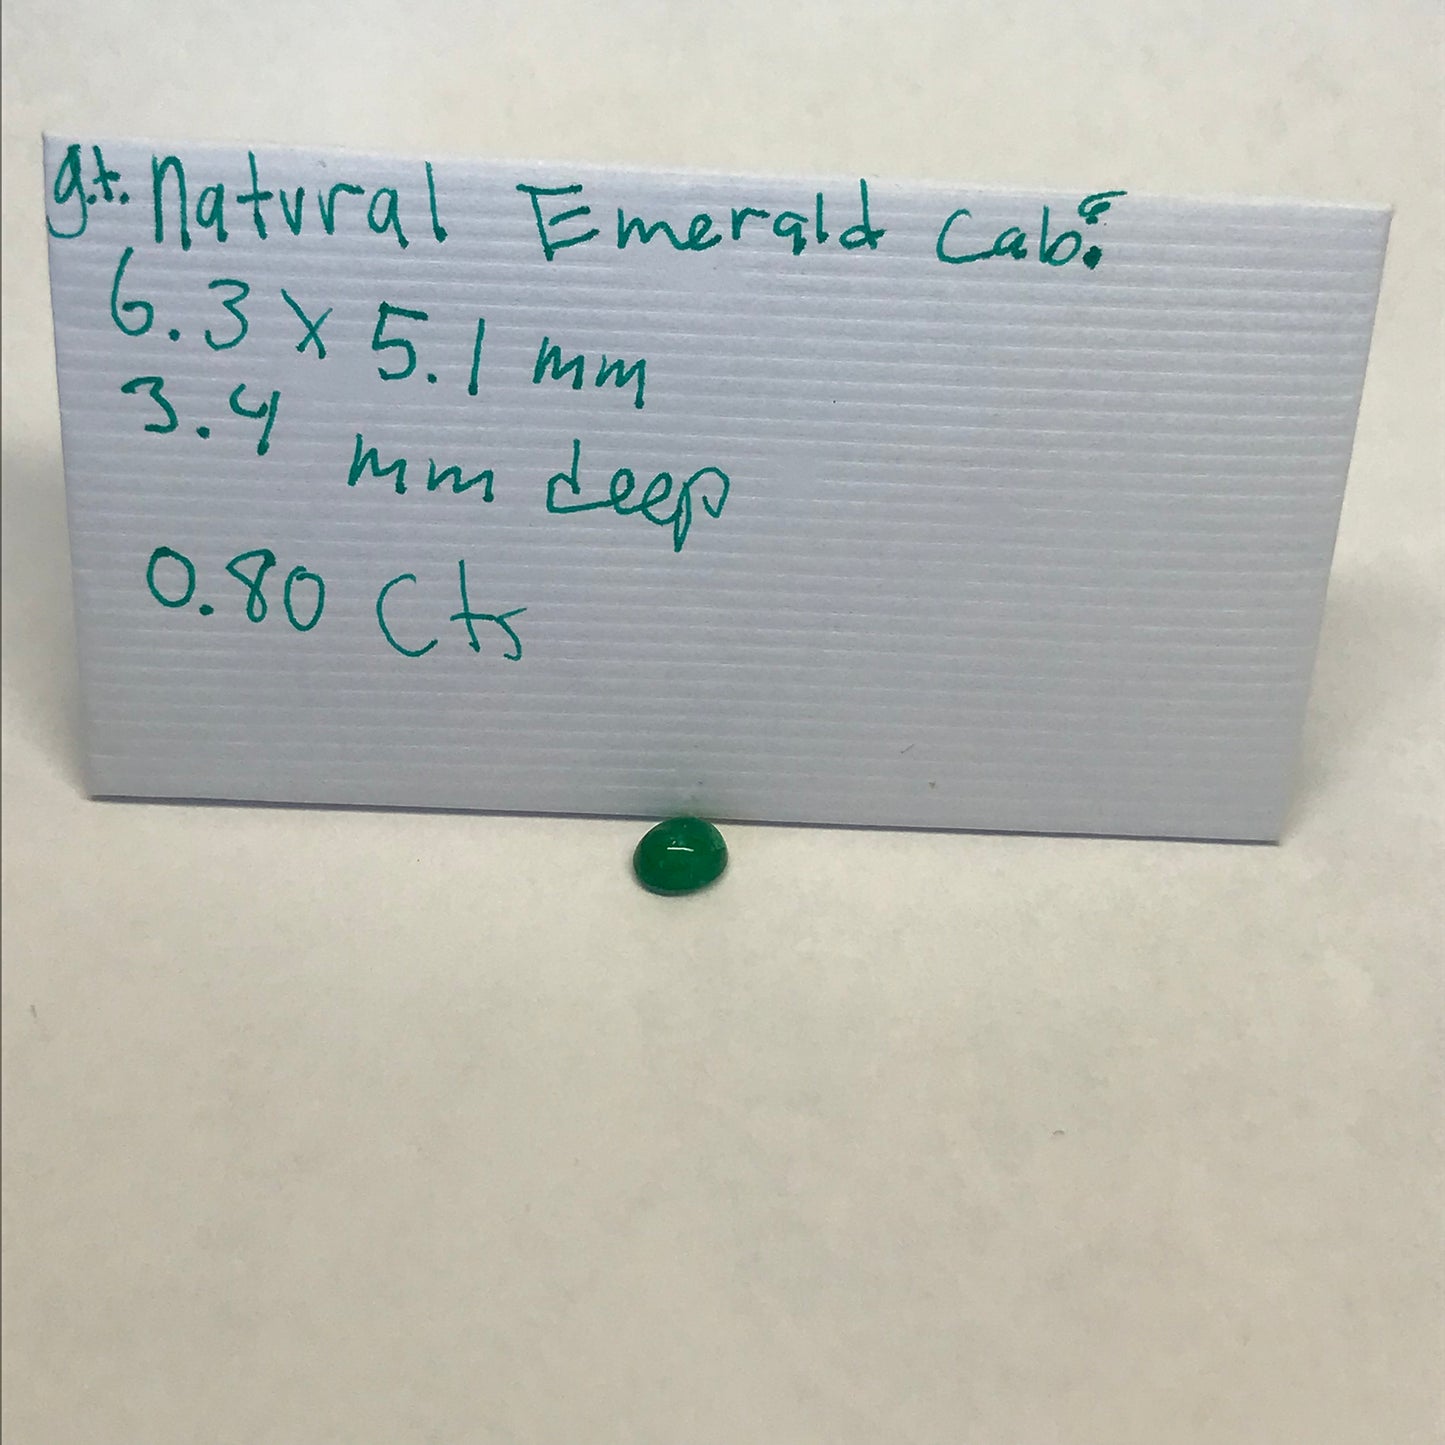 g.t. Natural Emerald Cab.
6.3 x 5.1 mm
3.4 mm deep
0.80 Cts